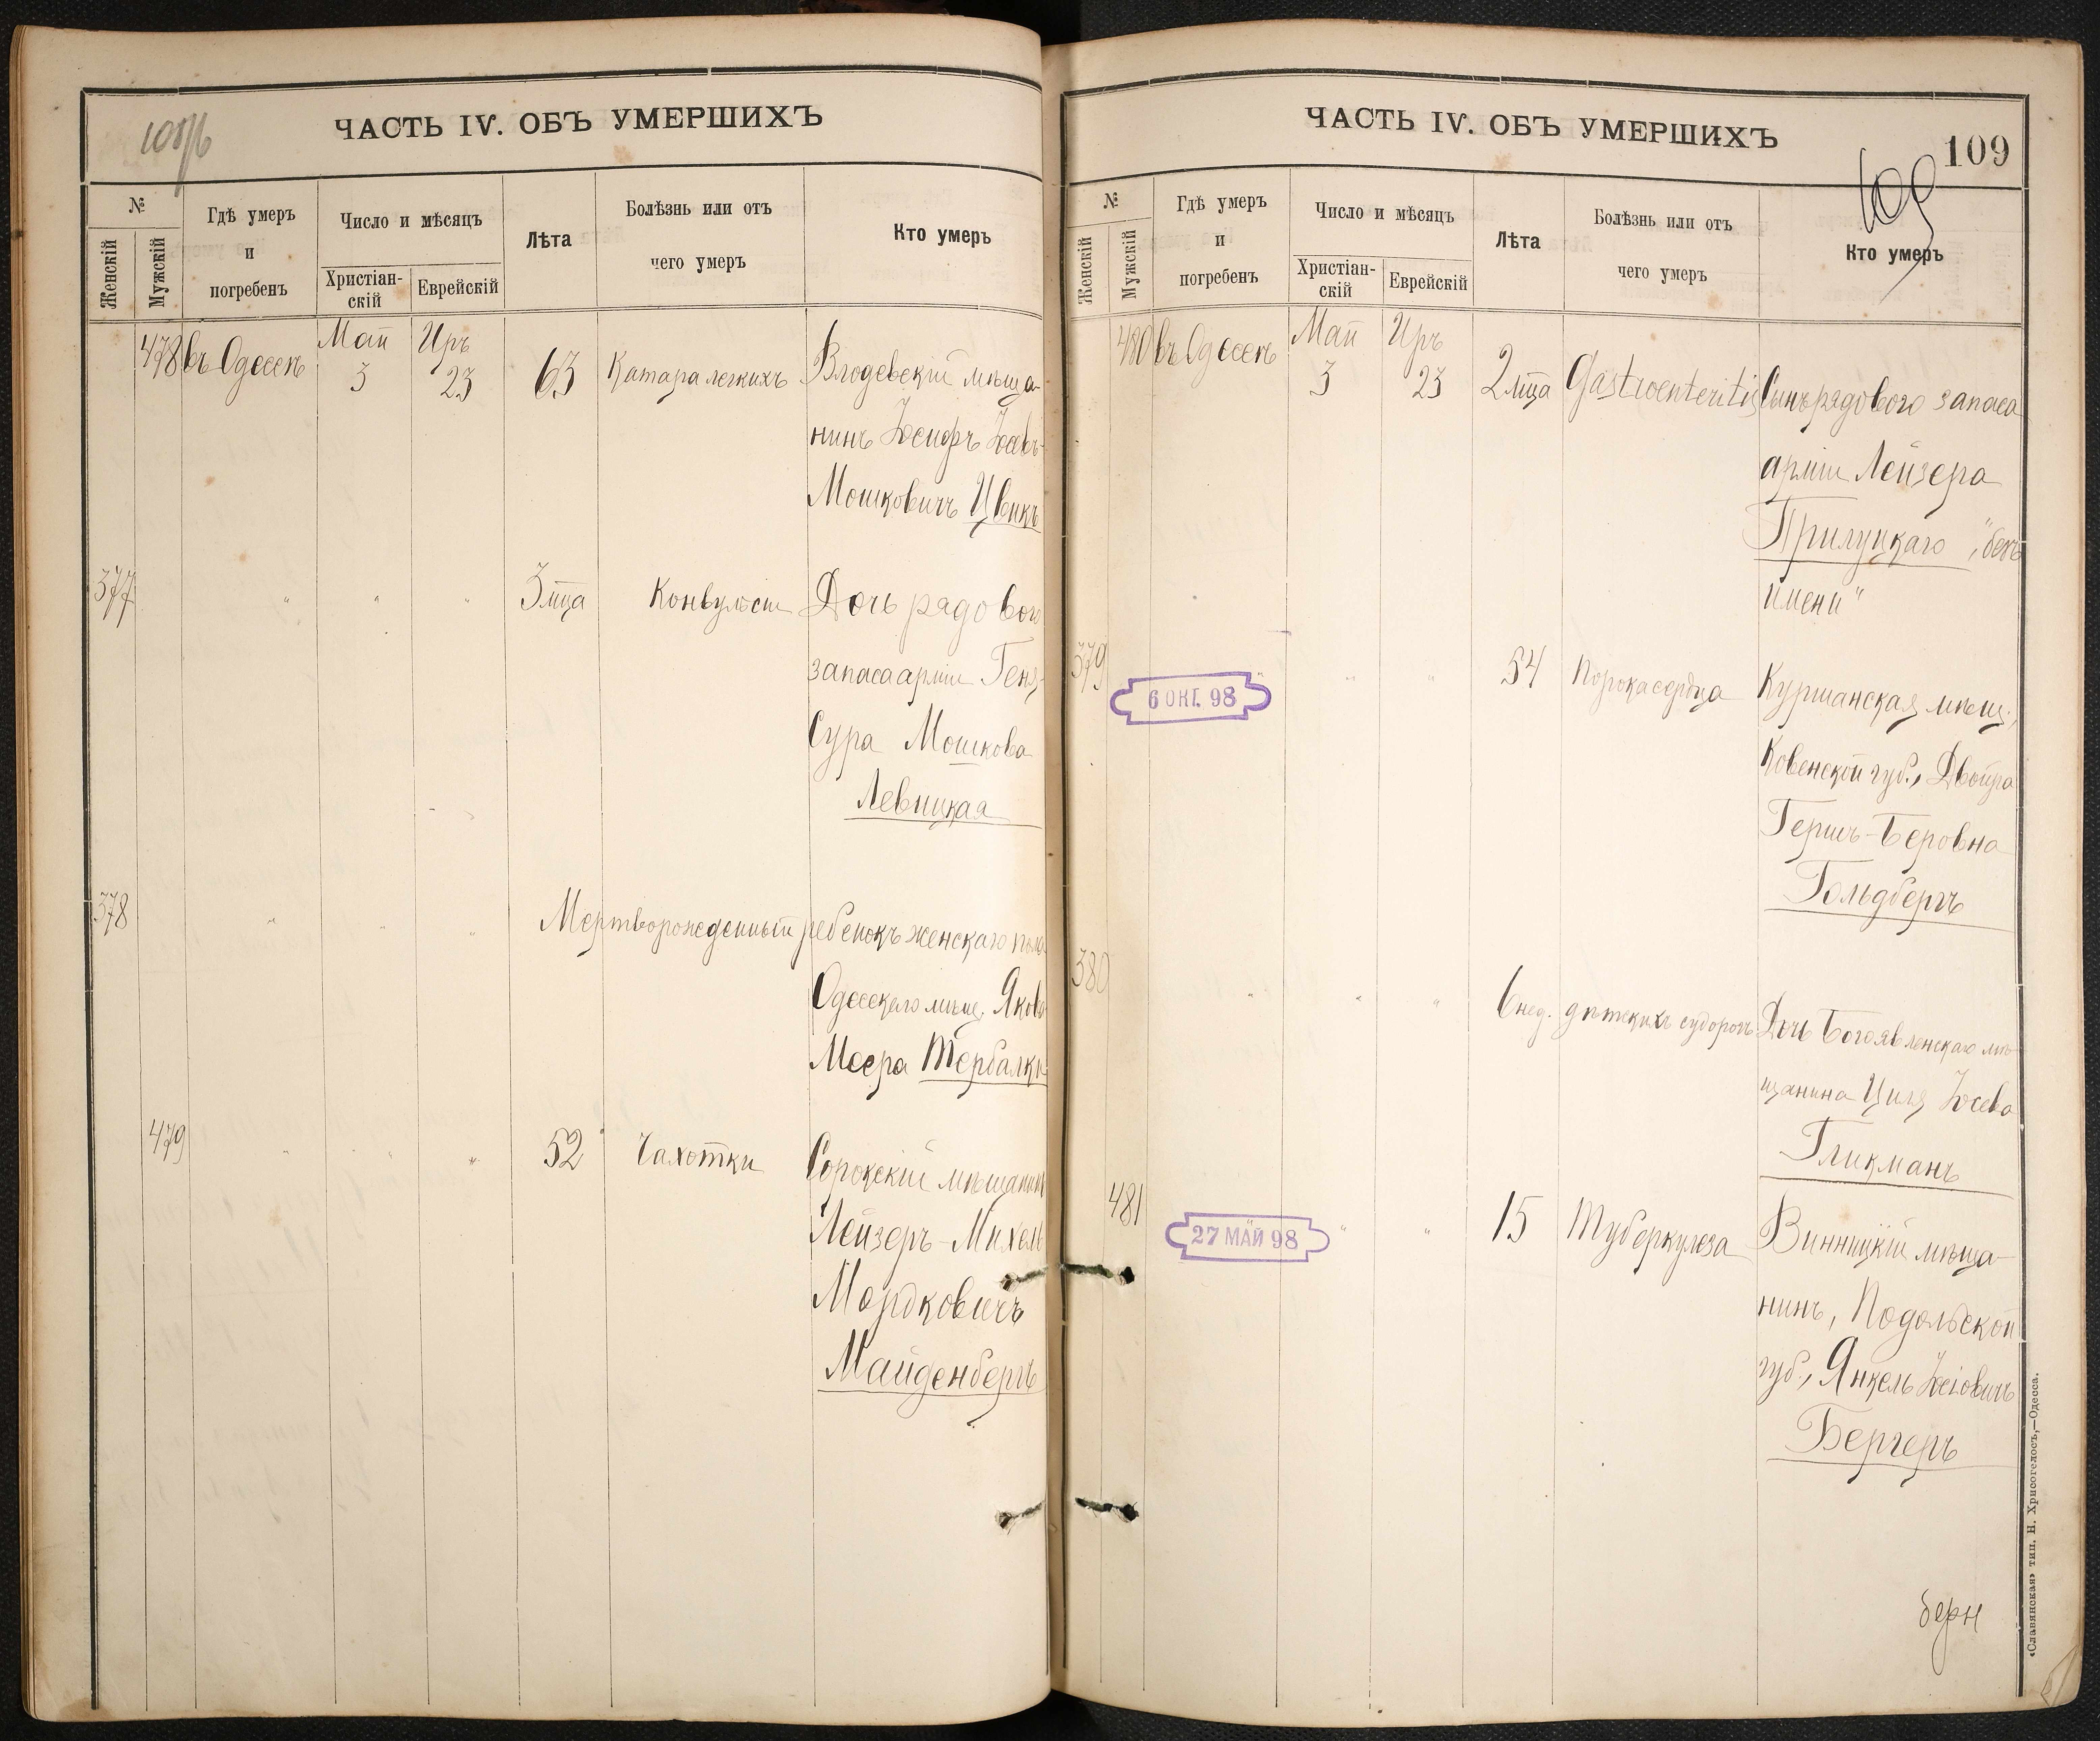 108об
ЧАСТЬ IV. ОБЪ УМЕРШИХЪ
№
Женскій
Мужскій
Гдѣ умеръ
и
погребенъ
Число и мѣсяцъ
Христіан-
скій
Еврейскій
Лѣта
Болѣзнь или отъ
чего умеръ
Кто умеръ
478 въ Одессѣ Май 3 Иръ 23 63 Катара легкихъ Влодевскій мѣща-
нинъ Іосифъ Іосевъ-
Мошковичъ Цвикъ
377 " " " 3 мца Конвульсіи Дочь рядового
запаса арміи Геня-
Сура Мошкова
Левицкая
378 " " " Мертворожденный ребенокъ женскаго пола
Одесскаго мѣщ. Якова
Меера Тербалки
479 " " " 52 Чахотки Сорокскій мѣщанинъ
Лейзеръ-Михель
Мордковичъ
Майденбергъ
ЧАСТЬ IV. ОБЪ УМЕРШИХЪ
109
109
№
Женскій
Мужскій
Гдѣ умеръ
и
погребенъ
Число и мѣсяцъ
Христіан-
скій
Еврейскій
Лѣта
Болѣзнь или отъ
чего умеръ
Кто умеръ
480 въ Одессѣ Май 3 Иръ 23 2 мца Gastroenteritis Сынъ рядового запаса
арміи Лейзера
Прилуцкаго, "безъ
имени"
379 " " " 54 Порока сердца Куршанская мѣщ.,
6 ОКТ. 98
Ковенской губ., Двойра
Гершъ-Беровна
Гольдбергъ
380 " " " 6 нед. дѣтскихъ судорогъ Дочь Богоявленскаго мѣ-
щанина Циля Іосева
Гликманъ
481 " " 15 Туберкулеза Винницкій мѣща-
27 МАЙ 98
нинъ, Подольской
губ., Янкель Іосіовичъ
Бергеръ
«Славянская» тип. Н. Хрисогелосъ,—Одесса.